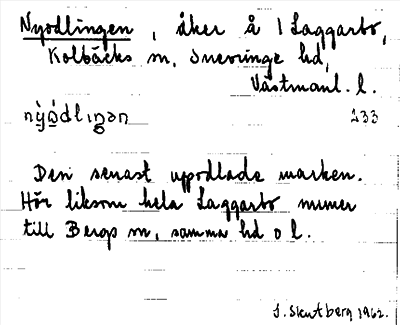 Nyodlingen, åker å 1 Laggarbo,
Kolbäcks sn, Snevringe hd,
Västmanl. l.
nỳòdlıŋən 233
Den senast uppodlade marken.
Hör liksom hela Laggarbo numer
till Bergs sn, samma hd o l.
S. Skutberg 1962.